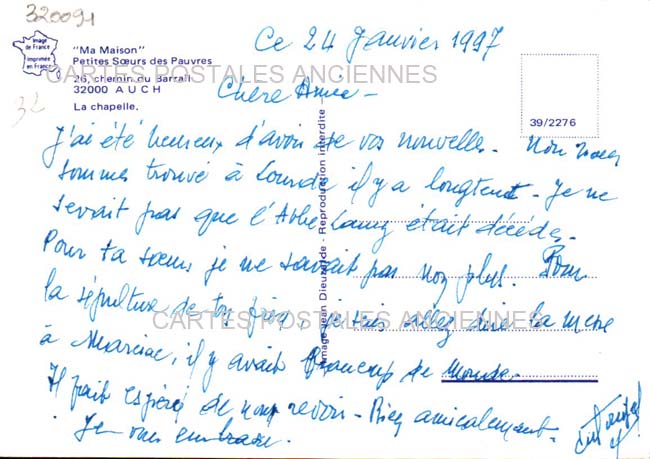 320091
Ce 24 Janvier 1997
Image de France
Imprimée en France
"Ma Maison"
Petites Sœurs des Pauvres
26, chemin du Barrail
32000 AUCH
La chapelle.
32
CARTES POSTALES ANCIENNES
39/2276
Chère Amie -
J'ai été heureux d'avoir de vos nouvelles. Nou nous
sommes trouvé à Lourde, il y a longtent - Je ne
savait pas que l'Abbé était décédé.
Pour ta sœur je ne savait pas non plus. Pour
la sépulture de ton je suis allez dire la messe
à Marciac, il y avait Beaucoup de Monde.
Il fait espérer de nous revoir - Bien amicalement.
Je vous embrasse.
Image Jean Dieuzaide - Reproduction interdite
CARTES POSTALES ANCIENNES